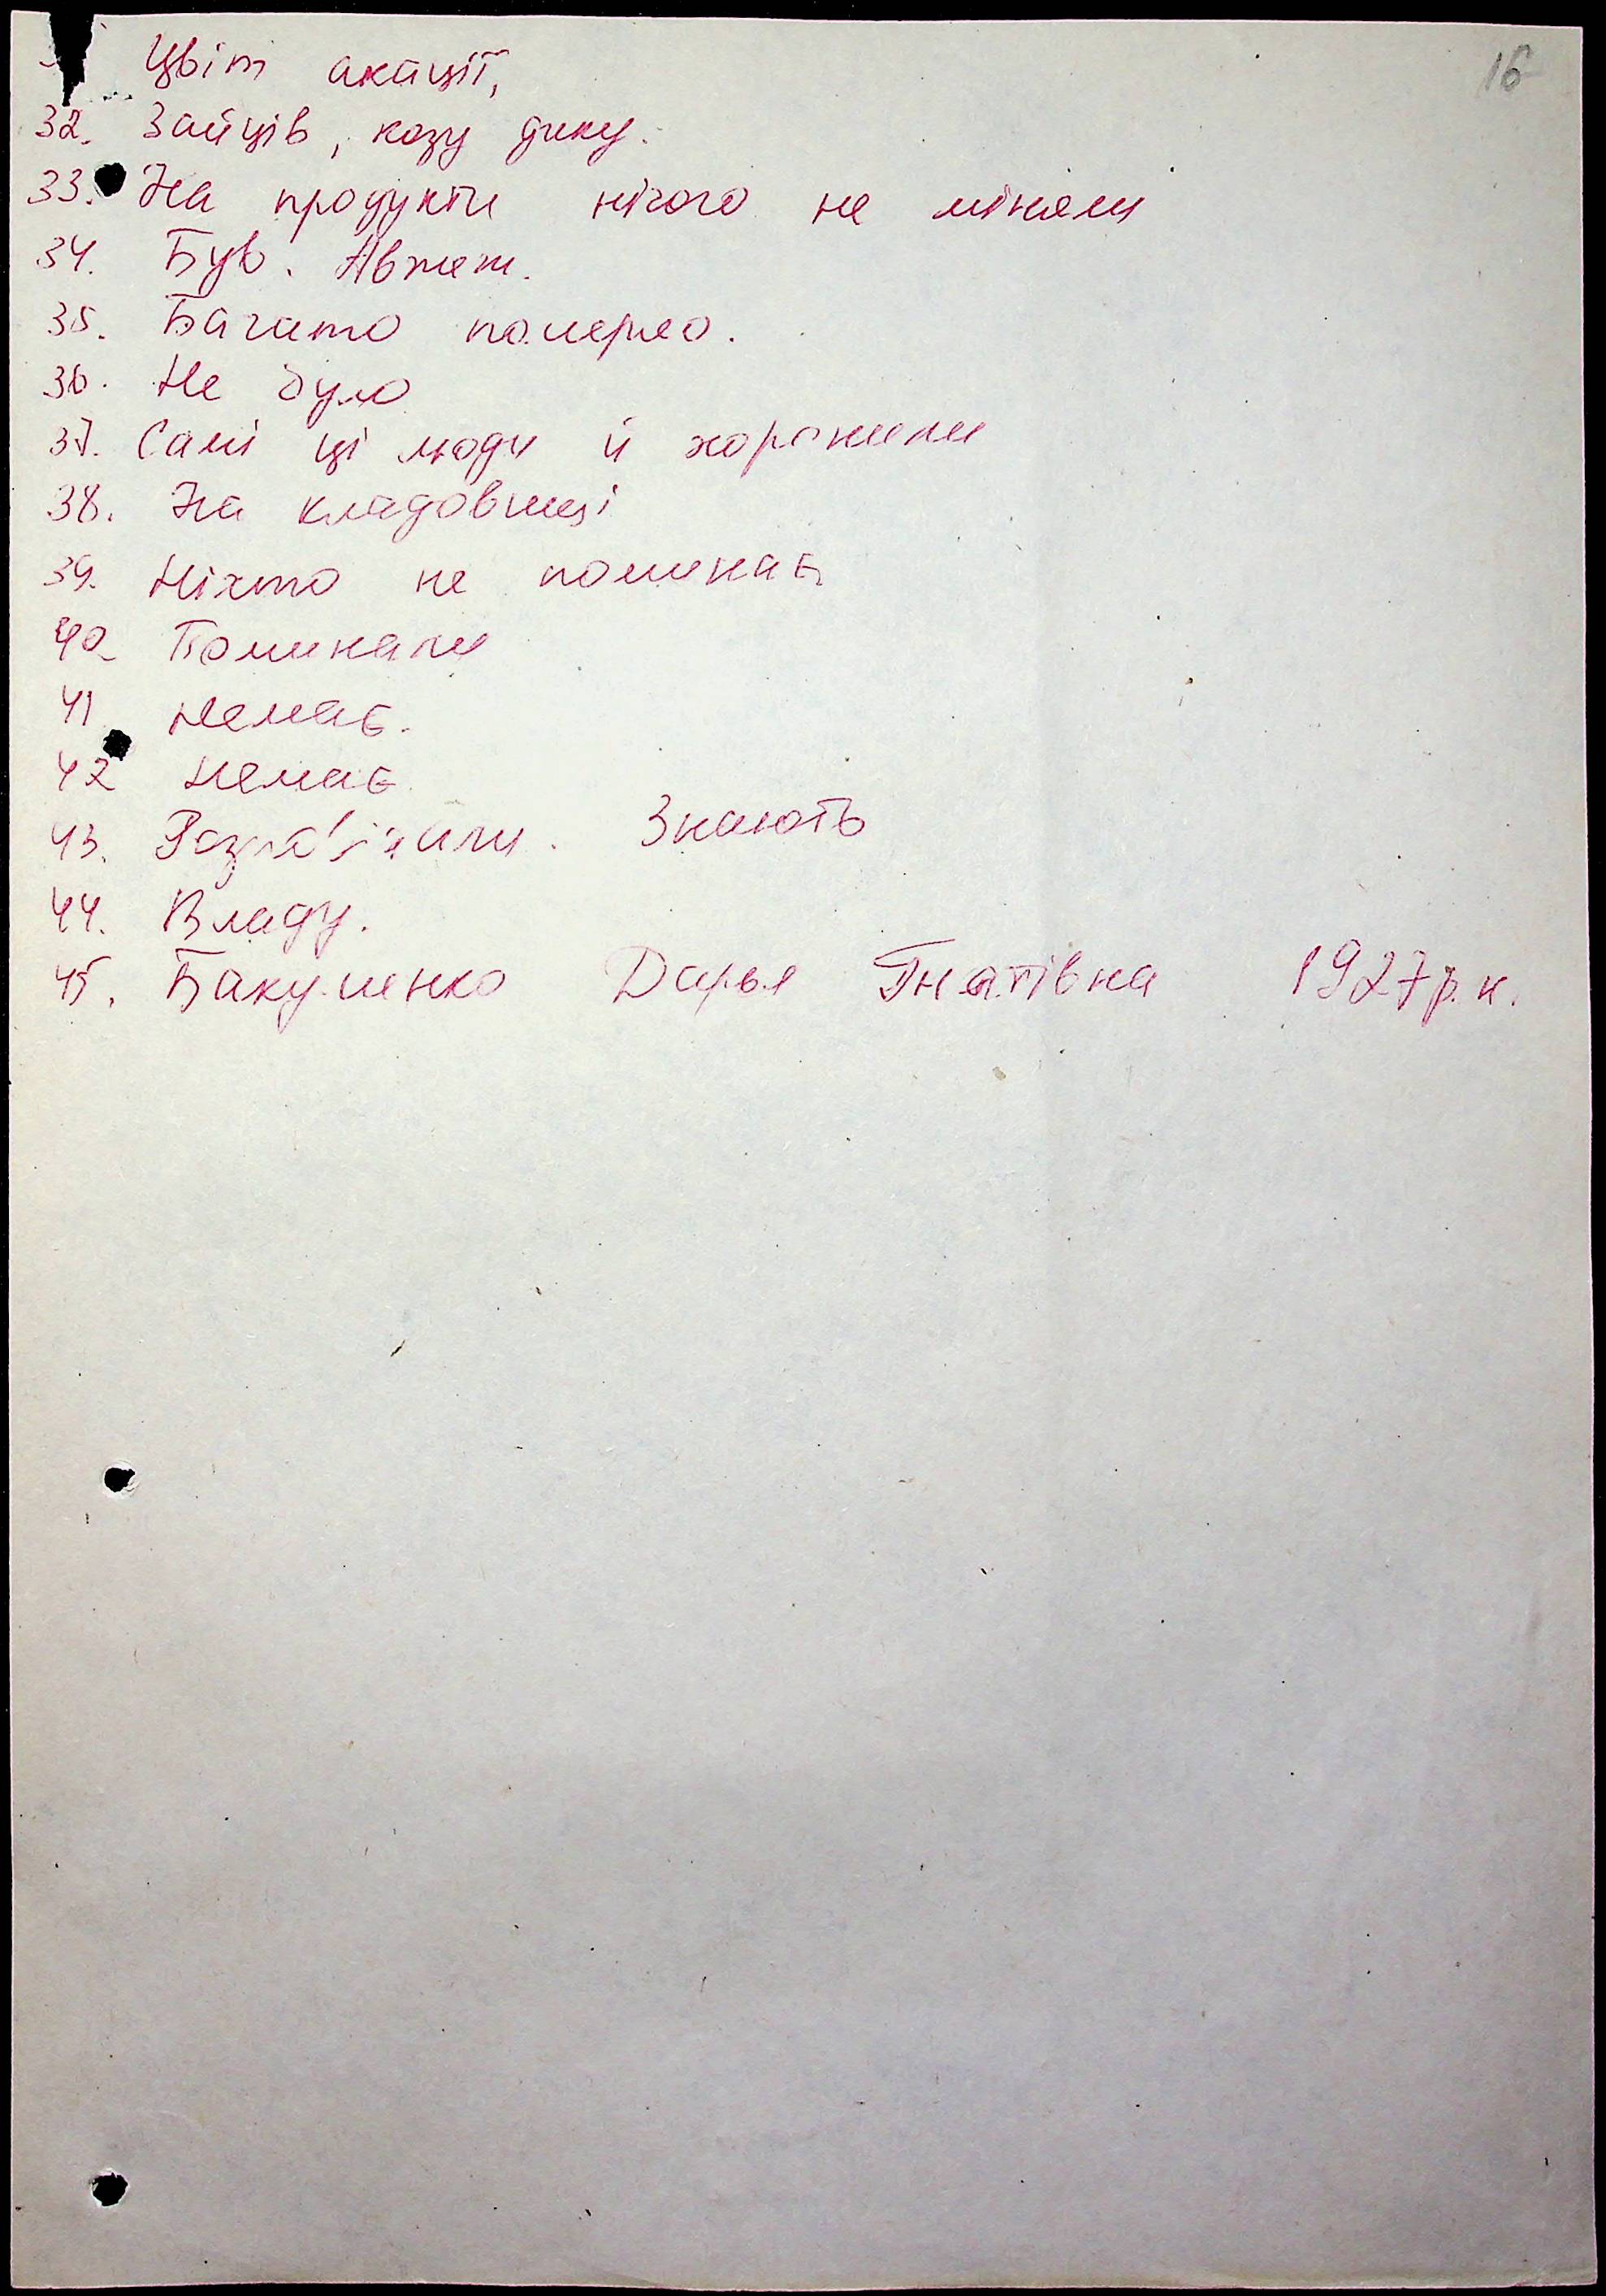 16
Цвіт акації,
32. Зайців, козу дику.
33. На продукти нічого не міняли
34. Був. Авжеж.
35. Багато померло.
36. Не було
37. Самі ці люди й хоронили
38. На кладовищі
39. Ніхто не поминає
40 Поминали
41 немає.
42 немає.
43. Знають
44. Владу.
45. Бакуменко Дарья Гнатівна 1927 р. н.